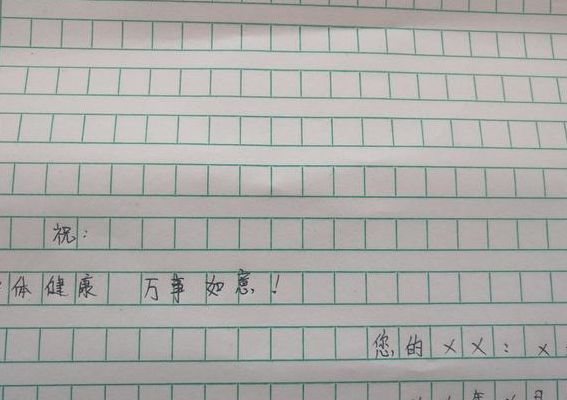 祝：
体健康 万事如意！
您的××：×
年×月